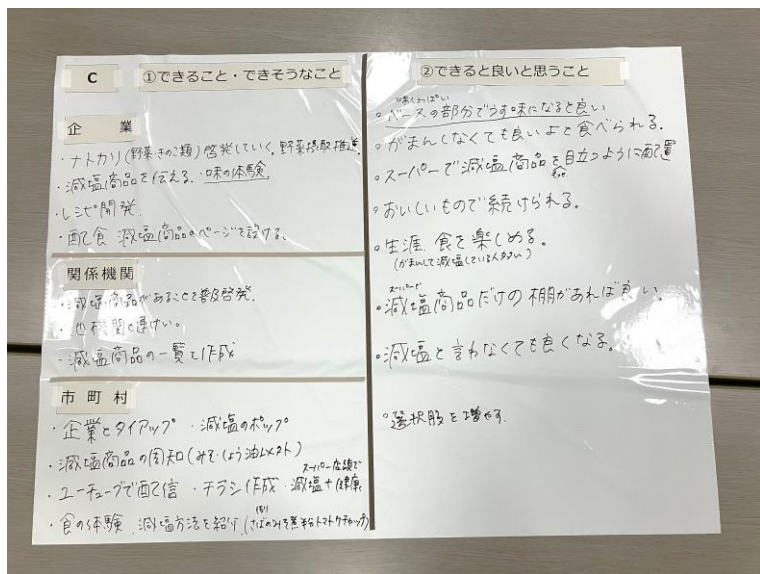 C ①できること・できそうなこと
企業
・ナトカリ(野菜、きのこ類)啓発していく。野菜摂取推進
・減塩商品を伝える。味の体験
・レシピ開発
・配食 減塩商品のページを設ける。
関係機関
・減塩商品があることを普及啓発。
・他機関と連けい。
・減塩商品の一覧を作成
市町村
・企業とタイアップ ・減塩のポップ
・減塩商品の周知(みそ・しょう油)
スーパー店頭で
・ユーチューブで配信 ・チラシ作成 ・減塩+健康
・食の体験、減塩方法を紹介(さばのみそ煮半分トマトケチャップ)
②できると良いと思うこと
。ベースの部分でうす味になると良い
。がまんしなくても良いよと食べられる。
。スーパーで減塩商品を目立つように配置
。おいしいもので続けられる。
。生涯、食を楽しめる。
(がまんして減塩している人が多い)
スーパーで
。減塩商品だけの棚があれば良い。
。減塩と言わなくても良くなる。
。選択肢を増やす。